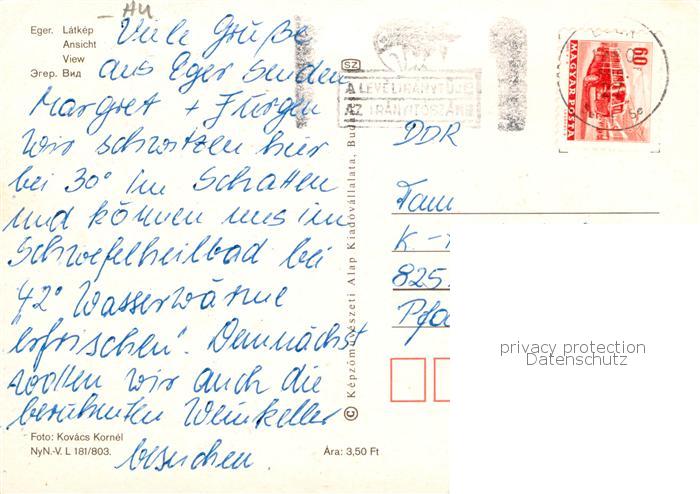 HU
Eger. Látkép
Ansicht
View
Эгер. Вид
Viele Grüße
aus Eger senden
Margret + Jürgen
Wir schwitzen hier
bei 30° im Schatten
und können uns im
Schwefelheilbad bei
42° Wasserwärme
"erfrischen". Demnächst
wollen wir auch die
berühmten Weinkeller
besuchen.
Foto: Kovács Kornél
NyN.-V. L 181/803.
Ára: 3,50 Ft
© Képzőművészeti Alap Kiadóvállalata, Budapest
SZ
A LEVÉL IRÁNYTŰJE
AZ IRÁNYÍTÓSZÁM
60
MAGYAR POSTA
DDR
Fam
K.-
825
Pfa
privacy protection
Datenschutz